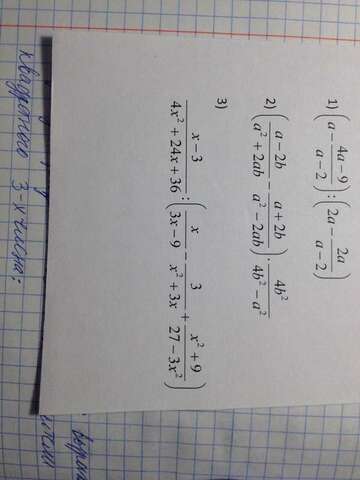 1) (a - \frac{4a-9}{a-2}) : (2a - \frac{2a}{a-2})
2) (\frac{a-2b}{a^2+2ab} - \frac{a+2b}{a^2-2ab}) \cdot \frac{4b^2}{4b^2-a^2}
3)
\frac{x-3}{4x^2+24x+36} : (\frac{x}{3x-9} - \frac{3}{x^2+3x} + \frac{x^2+9}{27-3x^2})
квадратного 3-х члена: